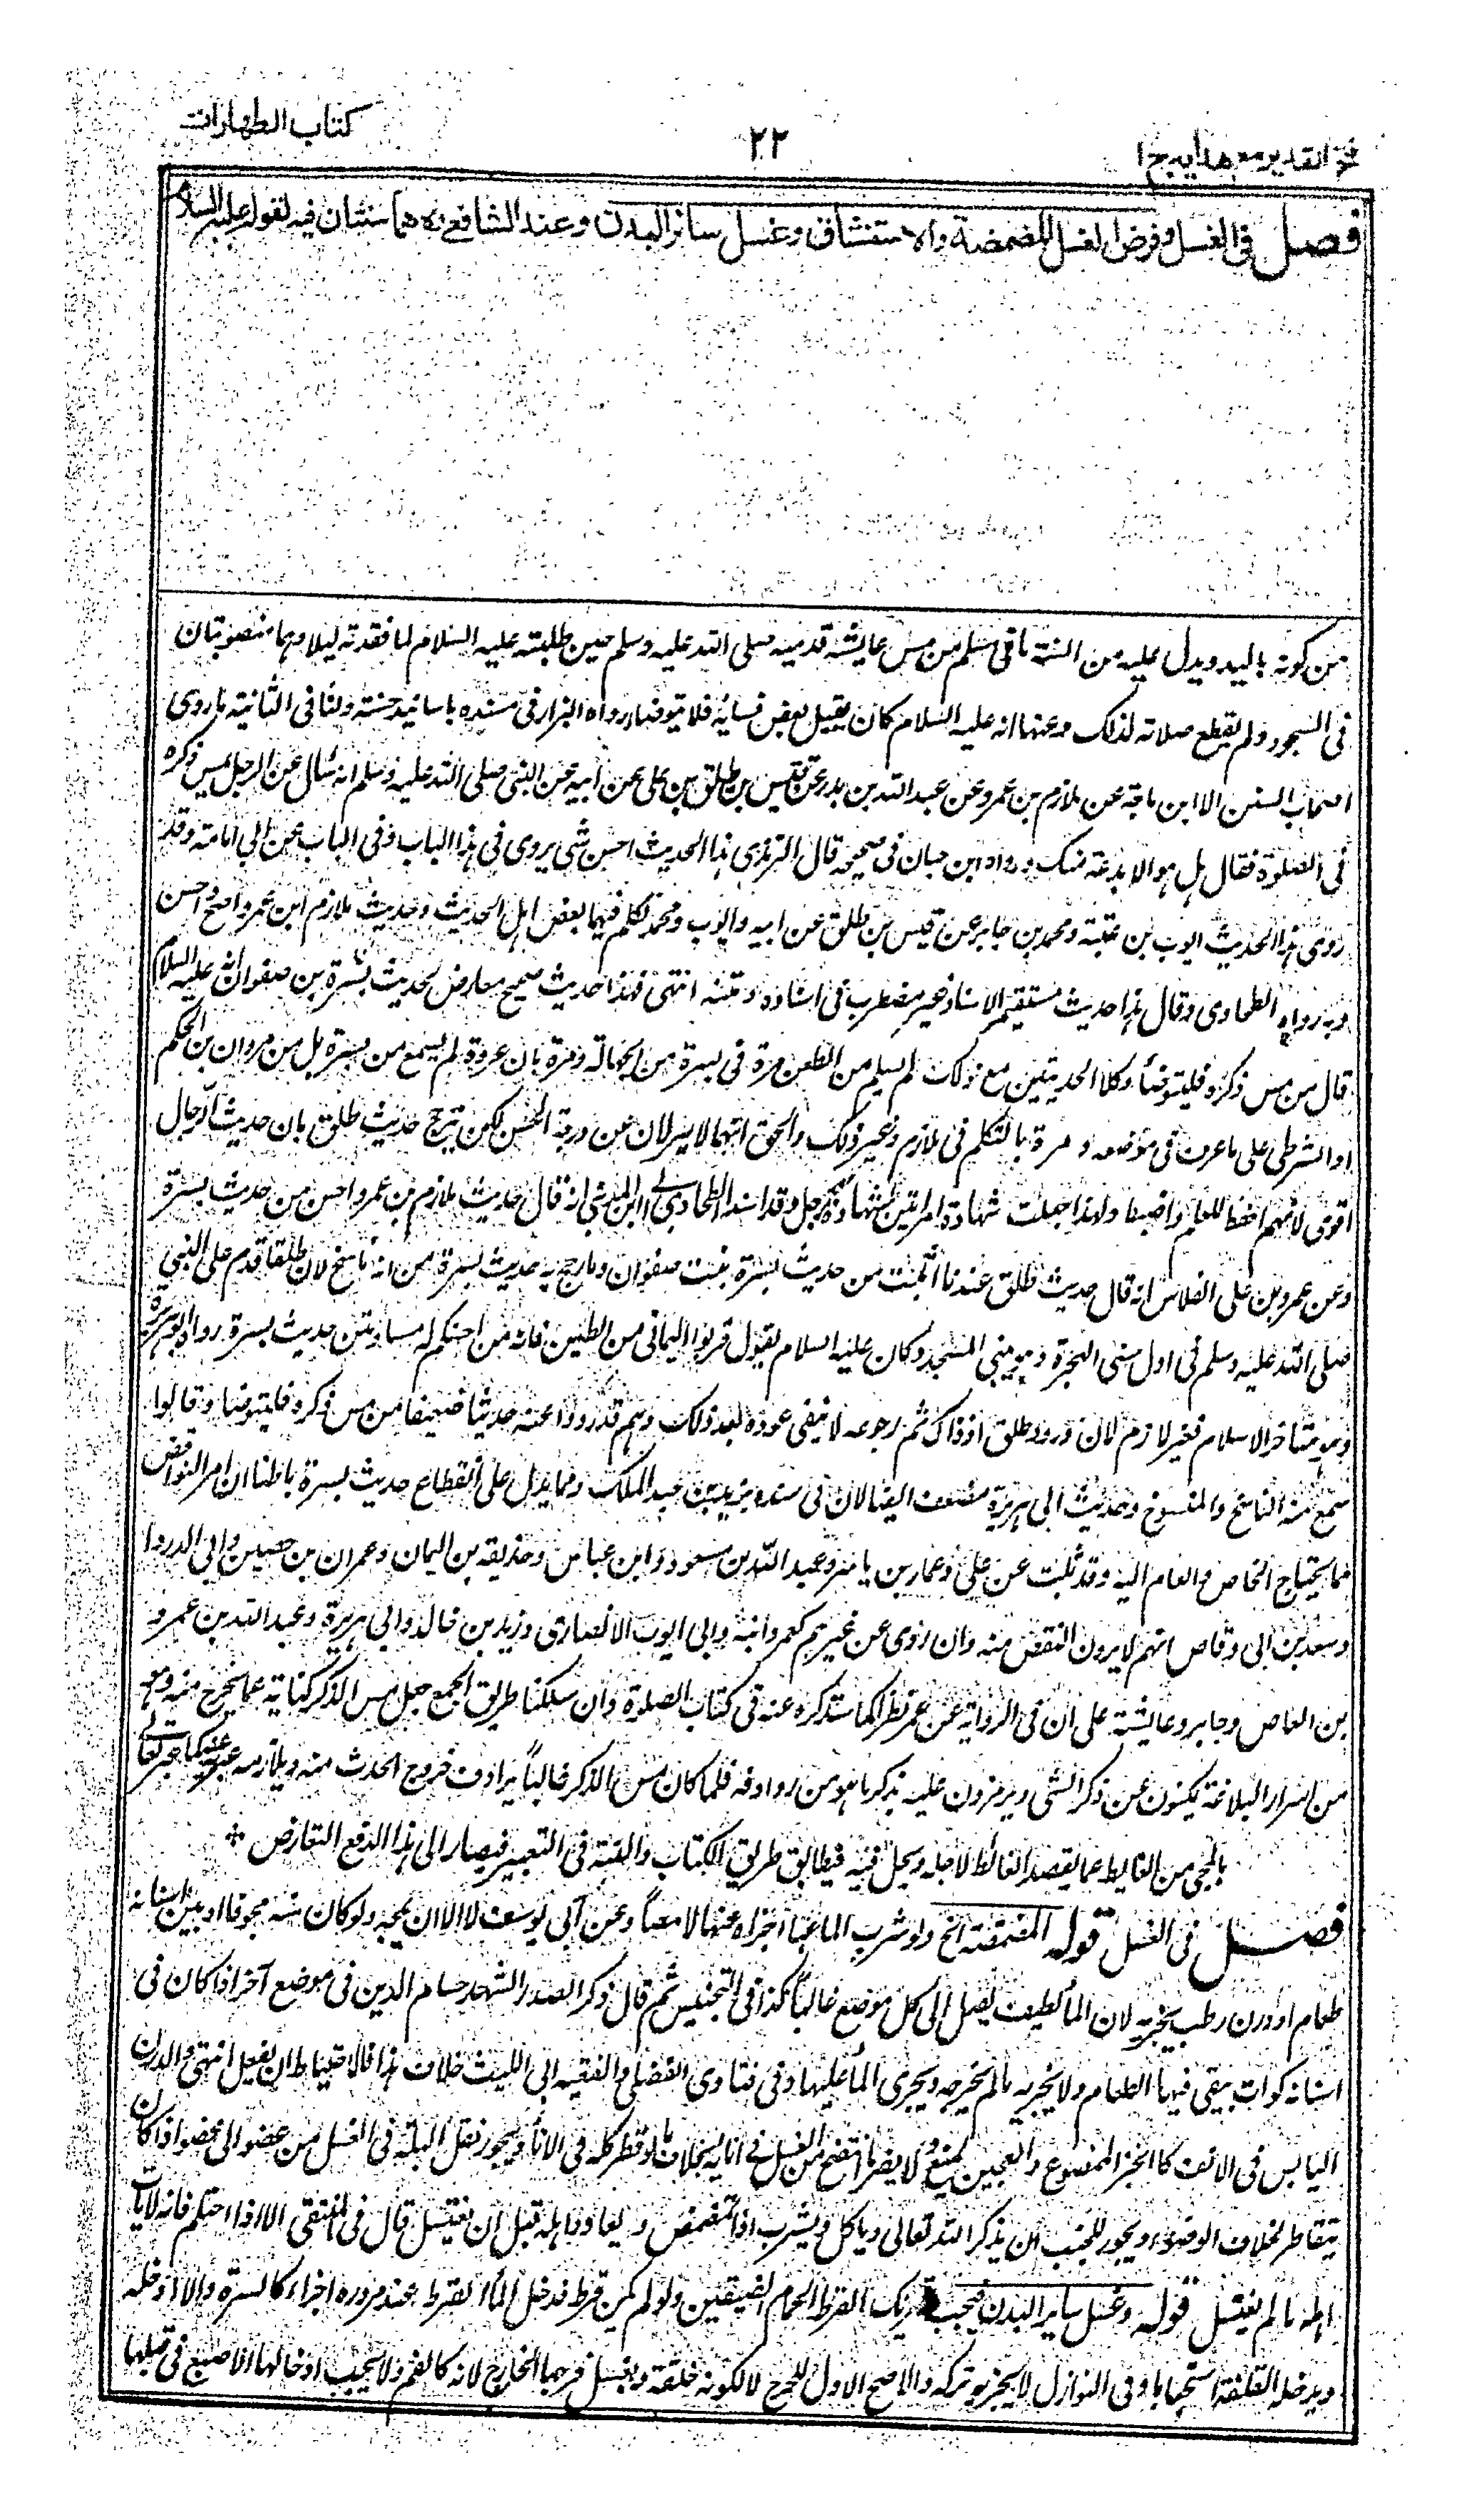 فتح القدير مع هدايه ج ا
٢٢
كتاب الطهارات
فصل فى الغسل وفرض الغسل المضمضة والاستنشاق وغسل سائر البدن وعند الشافعىؒ هما سنتان فيه لقوله عليه السلام
من كونه باليد ويدل عليه من السنة ما فى مسلم من مس عايشة قدميه صلى الله عليه وسلم حين طلبته عليه السلام لما فقدته ليلا وهما منصوبتان
فى السجود ولم يقطع صلاته لذلك وعنها انه عليه السلام كان يقبل بعض نسائه فلا يتوضا رواه البزار فى مسنده باسانيد حسنة ولنا فى الثانية ما روى
اصحاب السنن الا ابن ماجة عن ملازم بن عمرو عن عبد الله بن بدر عن قيس بن طلق بن على عن ابيه عن النبى صلى الله عليه وسلم انه سُال عن الرجل يمس ذكره
فى الصلوة فقال هل هو الا بضعة منك ورواه ابن حبان فى صحيحه قال الترمذى هذا الحديث احسن شى يروى فى هذا الباب وفى الباب عن ابى امامة وقد
روى هذا الحديث ايوب بن عتبة ومحمد بن جابر عن قيس بن طلق عن ابيه وايوب ومحمد تكلم فيهما بعض اهل الحديث وحديث ملازم ابن عمرو اصح واحسن
وبه رواه الطحاوى وقال هذا حديث مستقيم الاسناد غير مضطرب فى اسناده ومتنه انتهى فهذا حديث صحيح معارض لحديث بسرة بن صفوان انه عليه السلام
قال من مس ذكره فليتوضأ وكلا الحديثين مع ذلك لم يسلم من الطعن مرة فى بسرة من الجهالة ومرة بان عروة لم يسمع من بسرة بل من مروان بن الحكم
او الشرطى على ما عرف فى موضعه و مرة بالتكلم فى ملازم وغير ذلك والحق انهما لا ينزلان عن درجة الحسن لكن يترجح حديث طلق بان حديث الرجال
اقوى لانهم احفظ للعلم واضبط ولهذا جعلت شهادة امراتين بشهادة رجل وقد اسند الطحاوى الى ابن المدينى انه قال حديث ملازم بن عمرو احسن من حديث بسرة
وعن عمرو بن على الفلاس انه قال حديث طلق عندنا اثبت من حديث بسرة بنت صفوان وما رجح به حديث بسرة من انه ناسخ لان طلقا قدم على النبى
صلى الله عليه وسلم فى اول سنى الهجرة وهو يبنى المسجد وكان عليه السلام يقول قربوا اليمانى من الطين فانه من احسنكم له مسا ومتن حديث بسرة رواه ابو هريرة
وهو متاخر الاسلام فغير لازم لان ورود طلق اذ ذاك ثم رجوعه لا ينفى عوده بعد ذلك وهم قد رووا عنه حديثا ضعيفا من مس ذكره فليتوضا وقالوا
سمع منه الناسخ والمنسوخ وحديث ابى هريرة مضعف ايضا لان فى سنده يزيد بن عبد الملك ومما يدل على انقطاع حديث بسرة باطنا ان امر النواقض
مما يحتاج الخاص والعام اليه وقد ثبت عن على وعمار بن ياسر وعبد الله بن مسعود وابن عباس وحذيفة بن اليمان وعمران بن حصين وابى الدردا
وسعد بن ابى وقاص انهم لا يرون النقض منه وان روى عن غيرهم كعمر وابنه وابى ايوب الانصارى وزيد بن خالد وابى هريرة وعبد الله بن عمرو
بن العاص وجابر وعايشة على ان فى الرواية عن عمر نظرا كما سنذكره عنه فى كتاب الصلوة وان سلكنا طريق الجمع جعل مس الذكر كناية عما يخرج منه وهو
من اسرار البلاغة يكنون عن ذكر الشى ويرمزون عليه بذكر ما هو من روادفه فلما كان مس الذكر غالباً يرادف خروج الحدث منه ويلازمه عبر به عنه كما عبر تعالى
بالمجئ من الغايط عما يقصد الغائط لاجله ويحل فيه فيطابق طريق الكتاب والسنة فى التعبير فيصار الى هذا الدفع التعارض
فصل فى الغسل قوله المضمضة الخ ولو شرب الما عباً اجزاه عنها لا مصاً وعن ابى يوسف لا الا ان يمجه ولو كان سنه مجوفا او بين اسنانه
طعام او درن رطب يجزيه لان الما لطيف يصل الى كل موضع غالباً كذا فى التجنيس ثم قال ذكر الصدر الشهيد حسام الدين فى موضع آخر اذا كان فى
اسنانه كوات يبقى فيها الطعام ولا يجزيه ما لم يخرجه ويجرى الماٴ عليها وفى فتاوى الفضلى والفقيه ابى الليث خلاف هذا فالاحتياط ان يفعل انتهى والدرن
اليابس فى الانف كالخبز الممضوغ والعجين يمنع ولا يضر ما انتضح من الغسل فى انائه بخلاف ما لو قطر كله فى الاناٴ ويجوز نقل البلة فى الغسل من عضو الى عضو اذا كان
يتقاطر بخلاف الوضوء ويجوز للجنب ان يذكر الله تعالى وياكل ويشرب اذا تمضمض و يعاود اهله قبل ان يغتسل قال فى المنتقى الا اذا احتلم فانه لا يات
اهله ما لم يغتسل قوله وغسل ساير البدن فيجب تحريك القرط والخاتم الضيقين ولو لم يكن قرط فدخل الماٴ الثقب عند مروره اجزاء كالسرة والا ادخله
ويدخله القلفة استحبابا وفى النوازل لا يجزيه تركه والاصح الاول للحرج لا لكونه خلقة وتغسل فرجها الخارج لانه كالفم ولا يجب ادخالها الاصبع فى قبلها